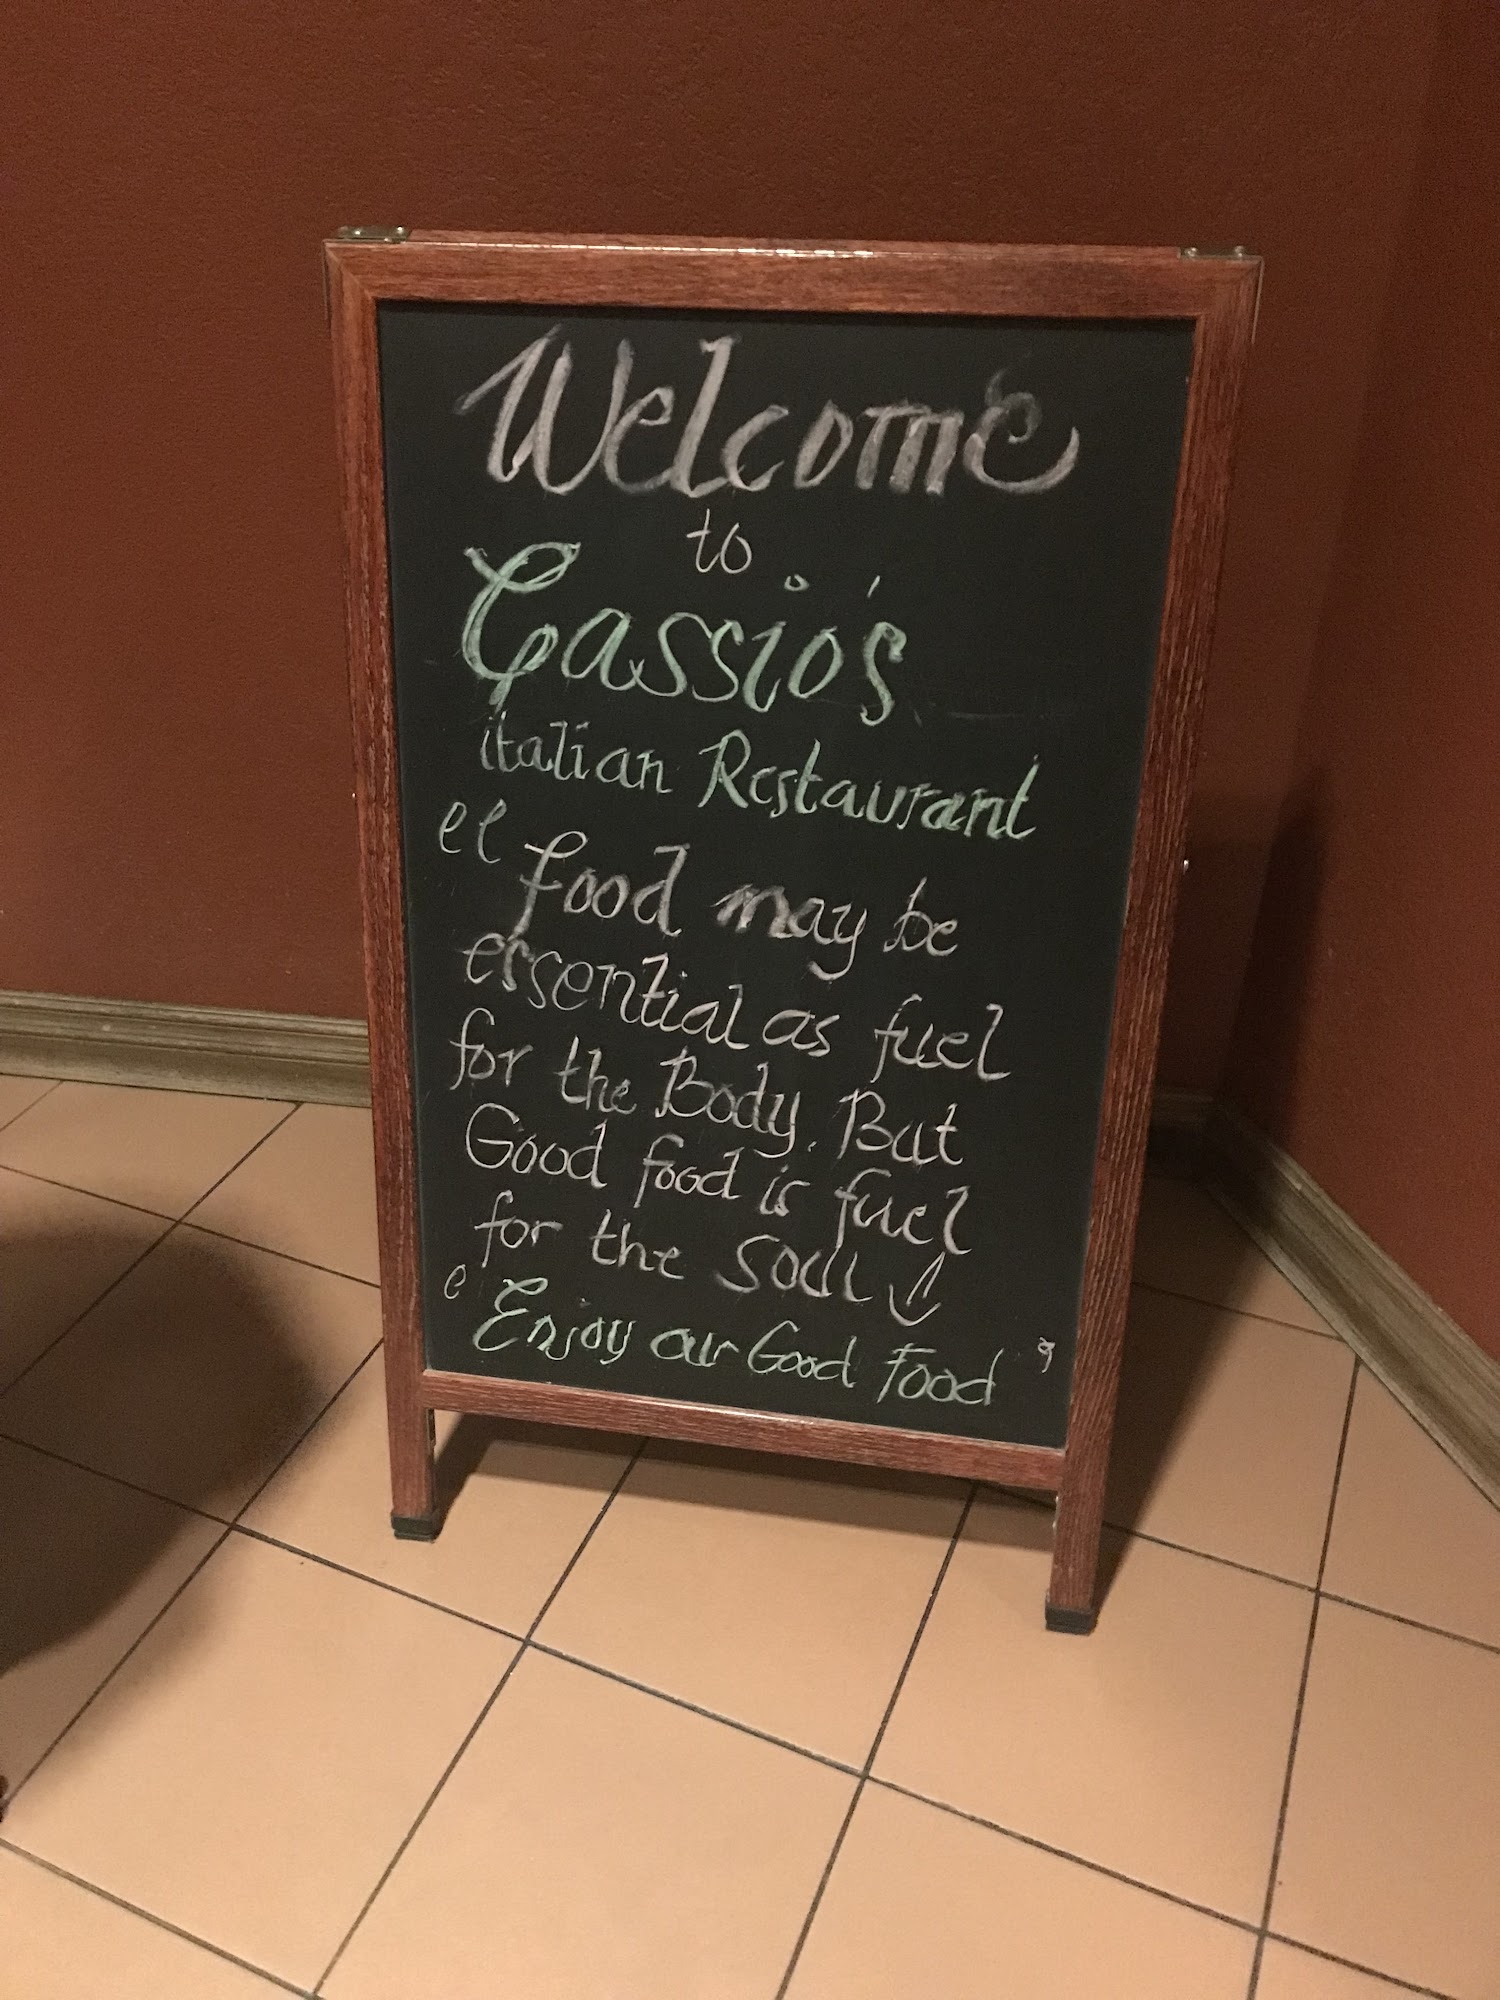 Welcome
to
Cassio's
italian Restaurant
“ food may be
essential as fuel
for the Body. But
Good food is fuel
for the soul
Enjoy our Good Food